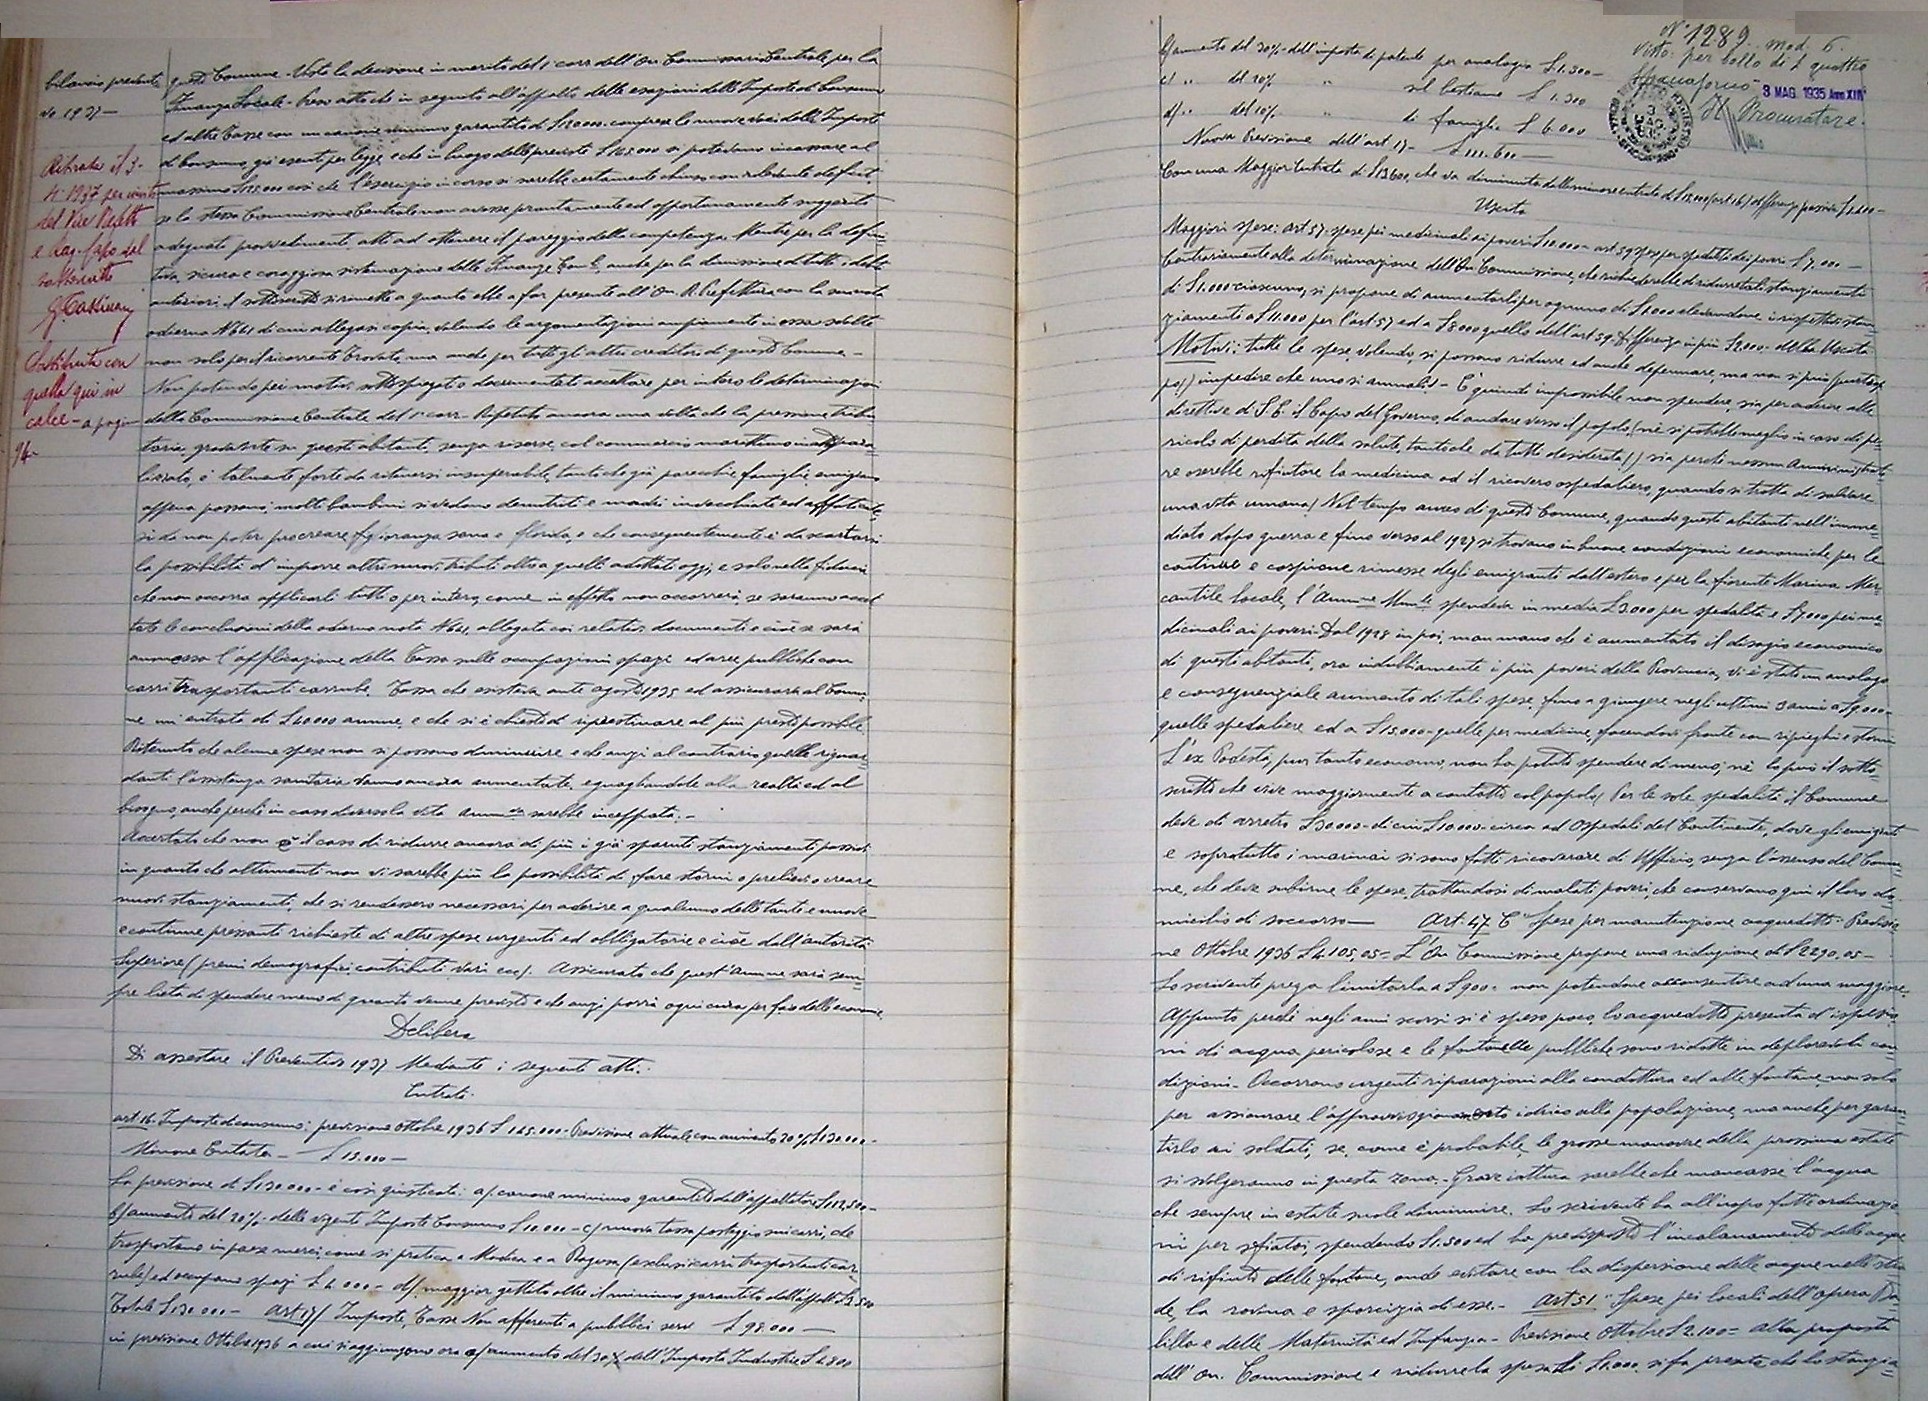 bilancio preventi-
vo 1937 -
Ritirata il 3-
4-1937 per invito
del Vice Prefetto
e Rag. Capo dal
sottoscritto
Sostituita con
quella qui in
calce - a pagina
94 -
questo Comune - Vista la decisione in merito del 1° corr dell'On Commissione Centrale per la
Finanza Locale - Preso atto che in seguito all'appalto delle esazioni delle Imposte di Consumo
ed altre Tasse con un canone minimo garantito di comprese le nuove voci delle Imposte
di Consumo già esenti per legge e che in luogo delle previste £ 165.000 si potevano incassare al
massimo £ 115.000 così che l'esercizio in corso si sarebbe certamente chiuso con rilevante deficit,
se la stessa Commissione Centrale non avesse prontamente ed opportunamente suggerito
adeguati provvedimenti atti ad ottenere il pareggio della competenza. Mentre per la defini-
tiva, sicura e coraggiosa sistemazione delle Finanze Com.li anche per la dimissione di tutti i debiti
anteriori, il sottoscritto si rimette a quanto ebbe a far presente all'On. R. Prefettura con la sua nota
odierna N 641 di cui allegasi copia, valendo le argomentazioni ampiamente in essa svolte
non solo per il ricorrente Trovato, ma anche per tutti gli altri creditori di questo Comune -
Non potendo pei motivi sotto spiegati e documentati accettare per intero le determinazioni
della Commissione Centrale del 1° corr - Ripetuto ancora una volta che la pressione tribu
taria gravante su questi abitanti, senza risorse, col commercio marittimo
è talmente forte da ritenersi insuperabile, tanto che già parecchie famiglie emigrano
appena possono; molti bambini si vedono denutriti e madri invecchiate ed affaticate,
sì da non poter procreare figliuolanza sana e florida, e che conseguentemente è da scartarsi
la possibilità d'imporre altri nuovi tributi oltre a quelli adottati oggi, e solo nella fiducia
che non occorra applicarli tutti o per intero, come in effetti non occorrerà, se saranno accet
tate le conclusioni della odierna nota N 641, allegata coi relativi documenti e cioè se sarà
ammessa l'applicazione della Tassa sulle occupazioni spazi ed aree pubbliche con
carri trasportanti carrube, Tassa che esisteva ante agosto 1935 ed assicurava al Comu-
ne un'entrata di £ 40.000 annue, e che si è chiesto di ripristinare al più presto possibile.
Ritenuto che alcune spese non si possono diminuire e che anzi al contrario quelle riguar-
danti l'assistenza sanitaria vanno ancora aumentate, eguagliandole alla realtà ed al
bisogno, anche perchè in caso diverso la vita Amm.va sarebbe inceppata. -
Accertato che non è il caso di ridurre ancora di più i già sparuti stanziamenti passivi,
in quanto che altrimenti non vi sarebbe più la possibilità di fare storni o prelievi o creare
nuovi stanziamenti, che si rendessero necessari per aderire a qualcuno delle tante e nuove
e continue pressanti richieste di altre spese urgenti ed obbligatorie e cioè dall'autorità
Superiore (premi demografici, contributi vari ecc). Assicurato che quest'Amm.ne sarà sem-
pre lieta di spendere meno di quanto venne previsto e che anzi porrà ogni cura per fare delle economie,
Delibera
Di assestare il Preventivo 1937 Mediante i seguenti atti:
Entrata
art 16 Imposte di consumo: previsione ottobre 1936 £ 165.000 - Previsione attuale con aumento 20% £ 130.000 -
Minore Entrata - £ 15.000 -
La previsione di £ 130.000 - è così giustificata: a/ canone minimo garantito dall'appaltatore £ 112.500 -
b/ aumento del 20% delle vigenti Imposte Consumo £ 10.000 - c/ nuova tassa posteggio sui carri, che
trasportano in paese merci, come si pratica a Modica e a Ragusa (esclusi carri trasportanti car-
rube) ed occupano spazi £ 4.000 - d/ maggior gettito oltre il minimo garantito dell'appalto £ 3.500
Totale £ 130.000 - art 17/ Imposte, Tasse Non afferenti a pubblici serv £ 98.000 -
in previsione Ottobre 1936 a cui si aggiungono ora a/ aumento del 30% dell'Imposta Industrie £ 4.800
N° 1289 mod. 6.
Visto per bollo di £ quattro
Spaccaforno 3 MAG. 1935 Anno XIII
Il Procuratore
b/ aumento del 30% dell'imposta di patente per analogia £ 1.500 -
c/ .. del 20% " sul bestiame £ 1.300
d/ .. del 10% " di famiglia £ 6.000
Nuova Previsione dell'art 17 - £ 111.600 -
Con una Maggior Entrata di £ 13.600, che va diminuita della minore entrata di £ 15.000 (art 16) differenza passiva £ 1.400 -
Uscita
Maggiori spese: art 57 spese pei medicinali ai poveri £ 10.000 - art 59 spese per spedalità dei poveri £ 7.000 -
Contrariamente alla determinazione dell'On Commissione, che richiederebbe di ridurre tali stanziamenti
di £ 1.000 ciascuno, si propone di aumentarli per ognuno di £ 1.000 elevandone i rispettivi stan-
ziamenti a £ 11.000 per l'art 57 ed a £ 8.000 quello dell'art 59. Differenza in più £ 2.000 - della Uscita
Motivi: tutte le spese, volendo, si possono ridurre ed anche depennare, ma non si può (purtrop-
po!) impedire che uno si ammali - È quindi impossibile non spendere, sia per aderire alle
direttive di S.E. il Capo del Governo, di andare verso il popolo, (nè si potrebbe meglio in caso di pe-
ricolo di perdita della salute, tanto che da tutti desiderata!) sia perchè nessun Amministrato
re oserebbe rifiutare la medicina od il ricovero ospedaliero, quando si tratta di salvare
una vita umana! Nel tempo aureo di questo Comune, quando questi abitanti nell'imme
diato dopo guerra e fino verso al 1927 si trovavano in buone condizioni economiche per le
continue e cospicue rimesse degli emigranti dall'estero e per la fiorente Marina Mer-
cantile locale, l'Amm.ne Mun.le spendeva in media £ 3.000 per spedalità e £ 7.000 pei me-
dicinali ai poveri - Dal 1928 in poi, man mano che è aumentato il disagio economico
di questi abitanti, ora indubbiamente i più poveri della Provincia, vi è stato un analogo
e consequenziale aumento di tali spese, fino a giungere negli ultimi 3 anni a £ 9.000 -
quelle spedaliere ed a £ 15.000 - quelle per medicine, facendovi fronte con ripieghi e storni
L'ex Podestà, pur tanto economo, non ha potuto spendere di meno; nè lo può il sotto-
scritto che vive maggiormente a contatto col popolo! Per le sole spedalità il Comune
deve di arretro £ 30.000 - di cui £ 10.000 - circa ad Ospedali del Continente, dove gli emigrati
e sopratutto i marinai si sono fatti ricoverare di Ufficio, senza l'assenso del Comu-
ne, che deve subirne le spese, trattandosi di malati poveri, che conservano qui il loro do-
micilio di soccorso - Art. 47 C "Spese per manutenzione acquedotti - Previsio-
ne Ottobre 1936 £ 4.105,05 - L'On Commissione propone una riduzione di £ 2290,05 -
Lo scrivente prega limitarla a £ 900 - non potendone acconsentire ad una maggiore.
Appunto perchè negli anni scorsi si è speso poco, lo acquedotto presenta dispersio-
ni di acqua pericolose e le fontanelle pubbliche sono ridotte in deplorevoli con
dizioni - Occorrono urgenti riparazioni alla conduttura ed alle fontane, non solo
per assicurare l'approvvigionamento idrico alla popolazione, ma anche per garan-
tirlo ai soldati, se, come è probabile, le grosse manovre della prossima estate
si svolgeranno in questa zona. - Grave iattura sarebbe che mancasse l'acqua
che sempre in estate suole diminuire. Lo scrivente ha all'uopo fatto ordinazio
ni per sfiatoi, spendendo £ 1.500 ed ha predisposto l'incalanamento delle acque
di rifiuto delle fontane, onde evitare con la dispersione delle acque nelle stra
de, la rovina e sporcizia di esse. - Art 51 "Spese pei locali dell'Opera Ba-
lilla e delle Maternità ed Infanzia - Previsione Ottobre £ 2.100 = alla proposta
dell'On. Commissione e ridurre la spesa di £ 1.000, si fa presente che lo stanzia-